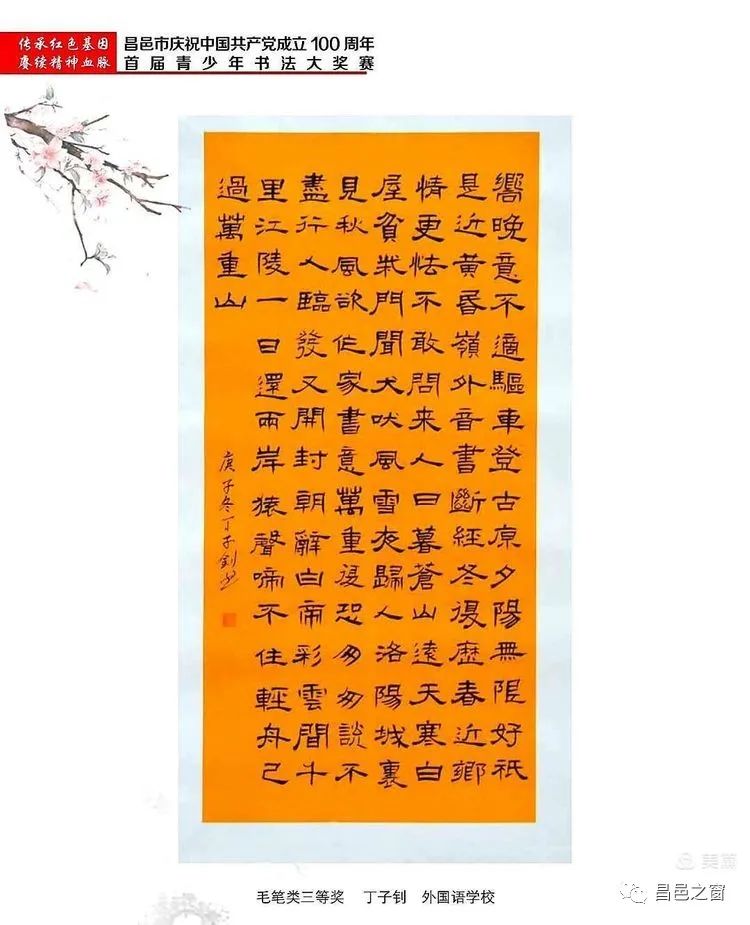 传承红色基因
赓续精神血脉
昌邑市庆祝中国共产党成立100周年
首届青少年书法大奖赛
嚮晚意不適驅車登古原夕陽無限好祇
是近黄昏嶺外音書斷經冬復歷春近鄉
情更怯不敢問来人日暮蒼山遠天寒白
屋貧柴門聞犬吠風雪夜歸人洛陽城裏
見秋風欲作家書意萬重復恐匆匆説不
盡行人臨發又開封朝辭白帝彩雲間千
里江陵一日還兩岸猿聲啼不住輕舟已
過萬重山
庚子冬丁子钊书
毛笔类三等奖 丁子钊 外国语学校
美篇
昌邑之窗